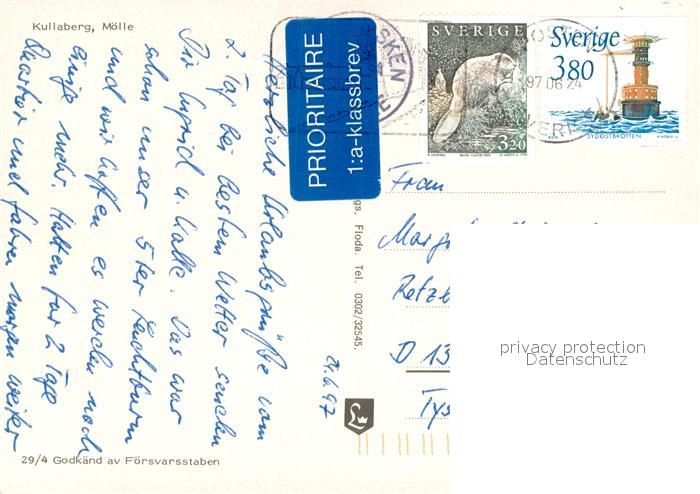 Kullaberg, Mölle
Herzliche Urlaubsgrüße vom
2. Tag bei bestem Wetter senden
Dir u. Kalle. Das war
schon unser 5ter Leuchtturm
und wir hoffen es werden noch
einige mehr. Hatten für 2 Tage
Quartier und fahren morgen weiter
29/4 Godkänd av Försvarsstaben
PRIORITAIRE
1:a-klassbrev
gs. Floda. Tel. 0302/32545.
24.6.97
SVERIGE
3.20
Sverige
380
SYDOSTBROTTEN
97 06 24
Frau
Retz
D 13
Tys
privacy protection
Datenschutz